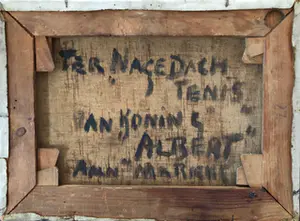 TER "NAGEDACH
TENIS"
VAN "KONING
ALBERT"
AAN